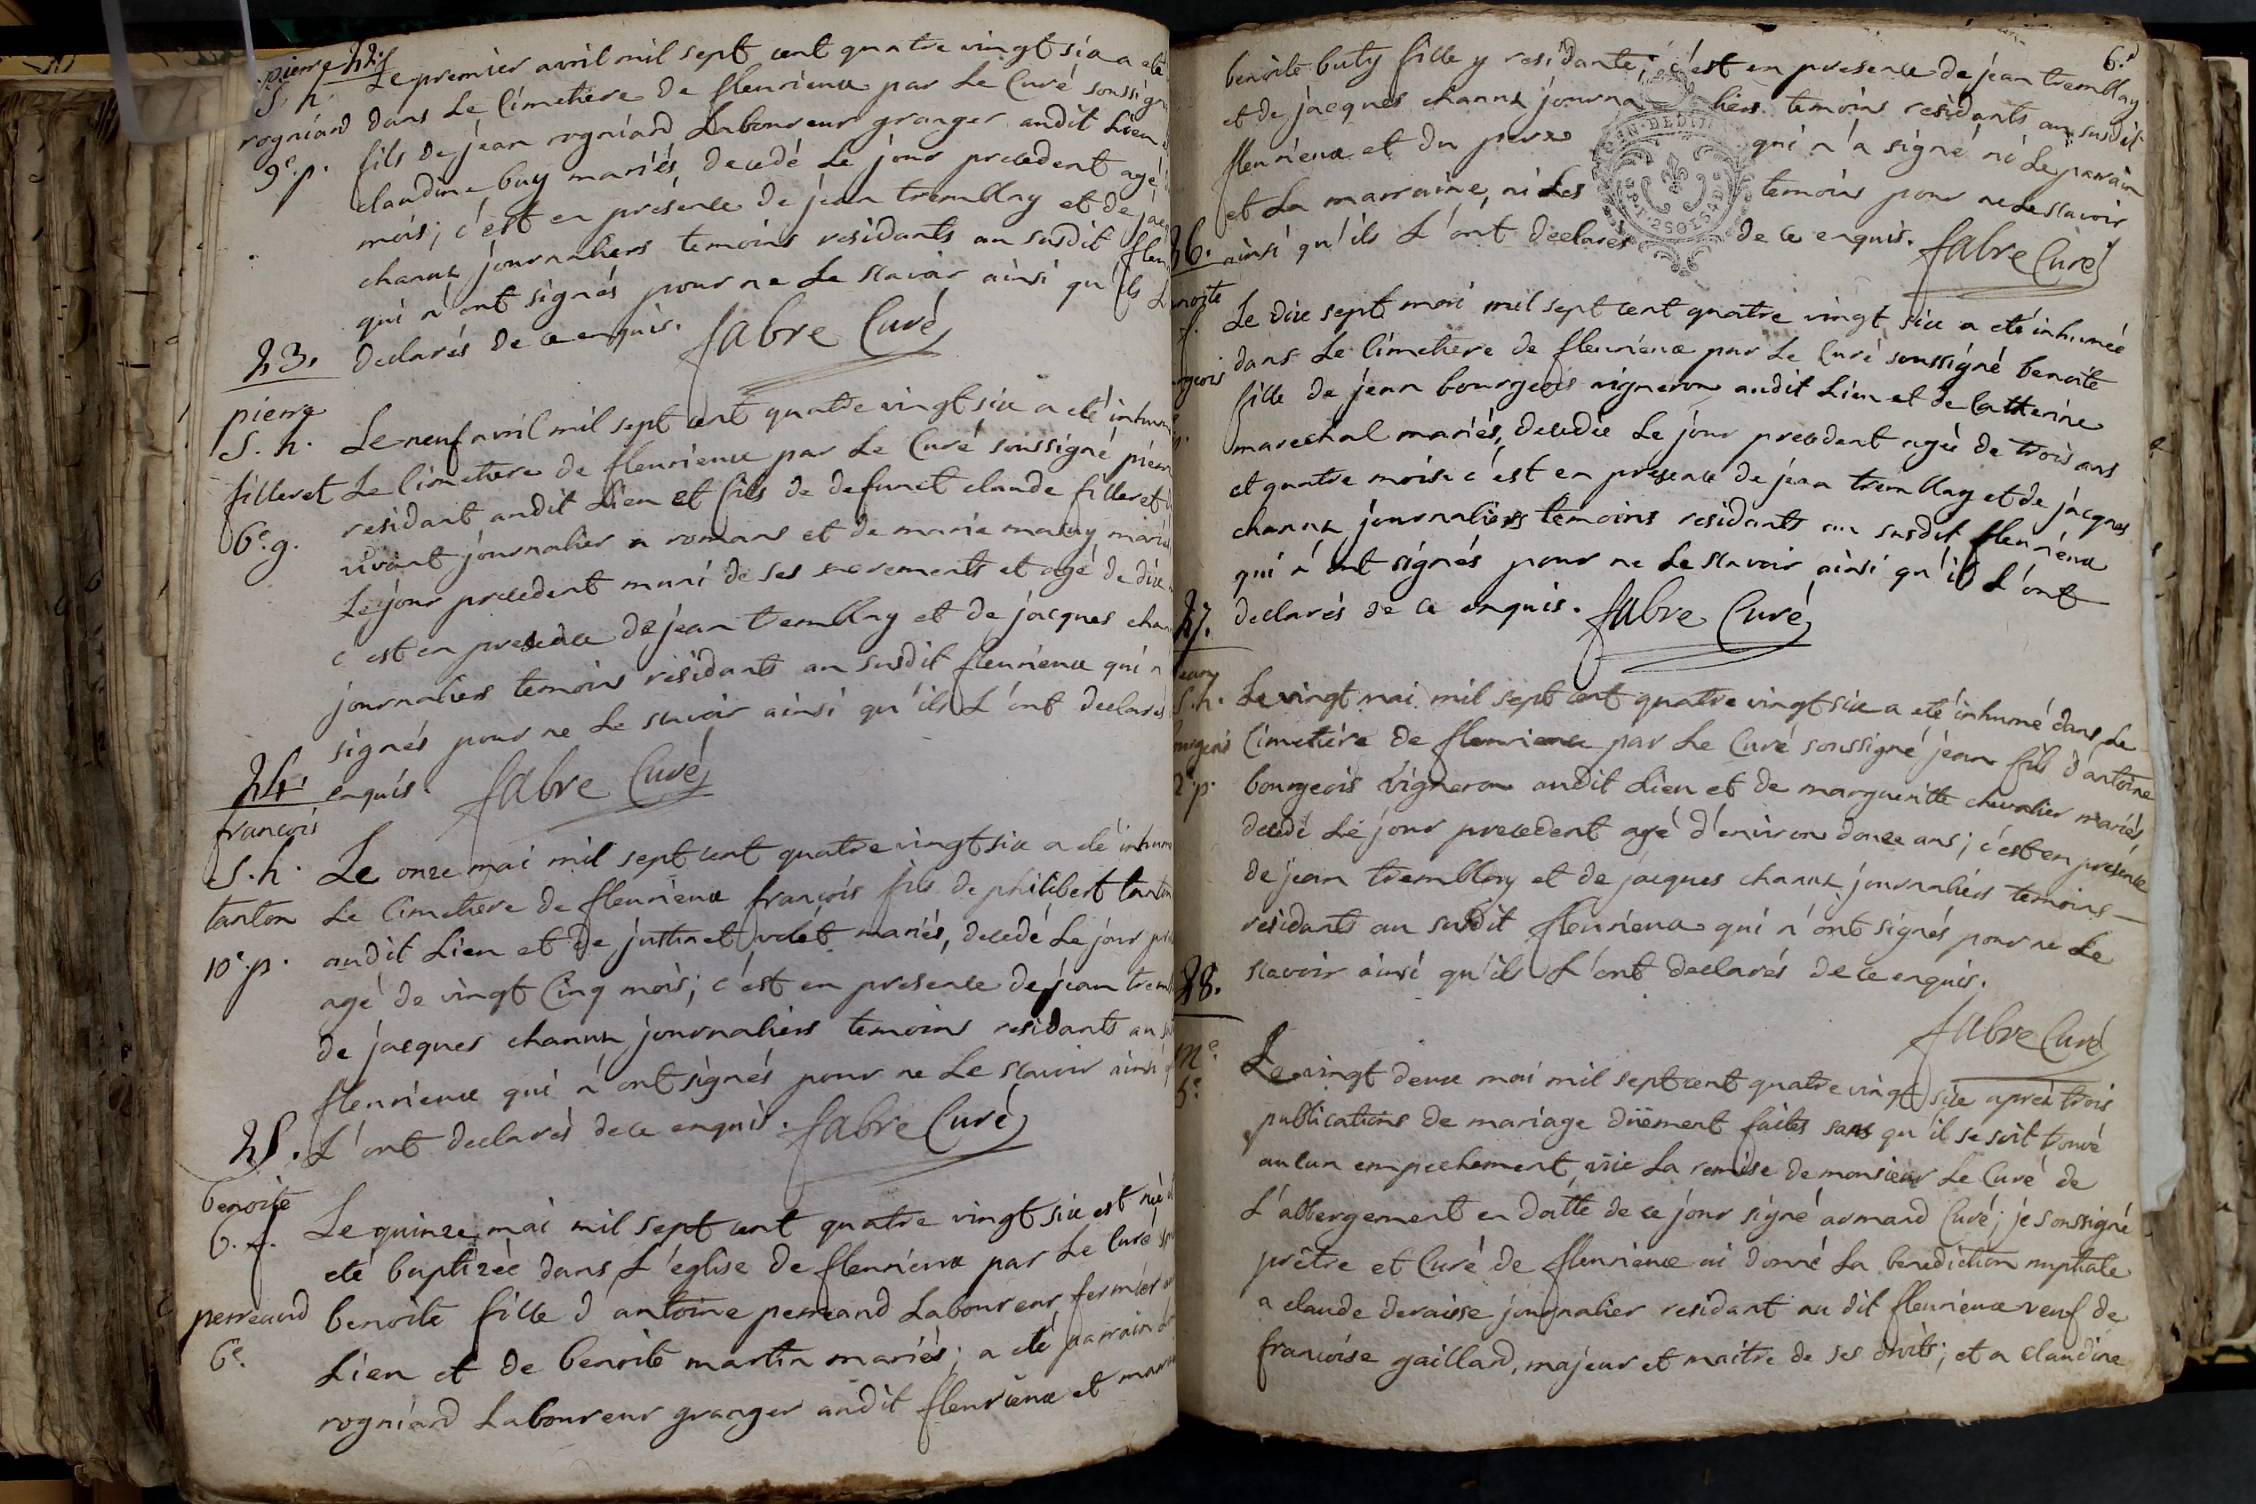 22.
pierre
S. h.
rogniard
9e. p.
Le premier avril mil sept cent quatre vingt six a eté
dans Le Cimetiere de fleurieux par Le Curé soussigné
fils de jean rogniard Laboureur granger audit Lieu
claudine buy mariés, decedé Le jour precedent agé
mois; c'est en présence de jean tremblay et de
chanux journaliers temoins residants au susdit
qui n'ont signés pour ne Le scavoir ainsi qu'ils
declarés de ce enquis. fabre Curé
23.
pierre
S. h.
filleret
6e. g.
Le neuf avril mil sept cent quatre vingt six a eté
Le Cimetiere de fleurieux par Le Curé soussigné
residant audit Lieu et fils de defunct claude filleret
vivant journalier a romans et de marie
Le jour precedent muni de ses sacrements et agé de
c'est en presence de jean tremblay et de jacques
journaliers temoins residants au susdit fleurieux qui n
signés pour ne Le scavoir ainsi qu'ils L'ont declarés
enquis. fabre Curé
24.
francois
S. h.
tanton
10e. p.
Le onze mai mil sept cent quatre vingt six a eté
Le Cimetiere de fleurieux françois fils de philibert
audit Lieu et de mariés, decedé Le jour
agé de vingt Cinq mois; c'est en presence de jean
de jacques chanux journaliers temoins residants au
fleurieux qui n'ont signés pour ne Le scavoir ainsi
L'ont declarés de ce enquis. fabre Curé
25.
benoite
b. f.
perreaud
6e.
Le quinze mai mil sept cent quatre vingt six est née
eté baptizée dans L'église de fleurieux par Le Curé
benoite fille d'antoine perreaud Laboureur fermier
Lieu et de benoite martin mariés; a eté parrain
rogniard Laboureur granger audit fleurieux et
6.e
benoite buty fille y residante; c'est en presence de jean tremblay
et de jacques chanux journaliers temoins residants au susdit
fleurieux et du pere qui n'a signé ni Le parrain
et La marraine, ni Les temoins pour ne Le scavoir
ainsi qu'ils L'ont declarés de ce enquis. fabre Curé
26.
Le dix sept mai mil sept cent quatre vingt six a eté inhumée
dans Le Cimetiere de fleurieux par Le Curé soussigné benoite
fille de jean bourgeois vigneron audit Lieu et de Catherine
marechal mariés, decedée Le jour precedent agée de trois ans
et quatre mois; c'est en presence de jean tremblay et de jacques
chanux journaliers temoins residants au susdit fleurieux
qui n'ont signés pour ne Le scavoir ainsi qu'ils L'ont
declarés de ce enquis. fabre Curé
27.
S. h.
2e. p.
Le vingt mai mil sept cent quatre vingt six a eté inhumé dans Le
Cimetiére de fleurieux par Le Curé soussigné jean fils d'antoine
bourgeois vigneron audit Lieu et de margueritte chevalier mariés,
decedé Le jour precedent agé d'environ douze ans; c'est en presence
de jean tremblay et de jacques chanux journaliers temoins
residants au susdit fleurieux qui n'ont signés pour ne Le
scavoir ainsi qu'ils L'ont declarés de ce enquis.
fabre Curé
28.
Le vingt deux mai mil sept cent quatre vingt six après trois
publications de mariage düement faites sans qu'il se soit trouvé
aucun empechement, vüe La remise de monsieur Le Curé de
L'abbergement en datte de ce jour signé armand Curé; je soussigné
prêtre et Curé de fleurieux ai donné La benediction nuptiale
a claude deraisse journalier residant au dit fleurieux veuf de
francoise gaillard, majeur et maitre de ses droits; et a claudine